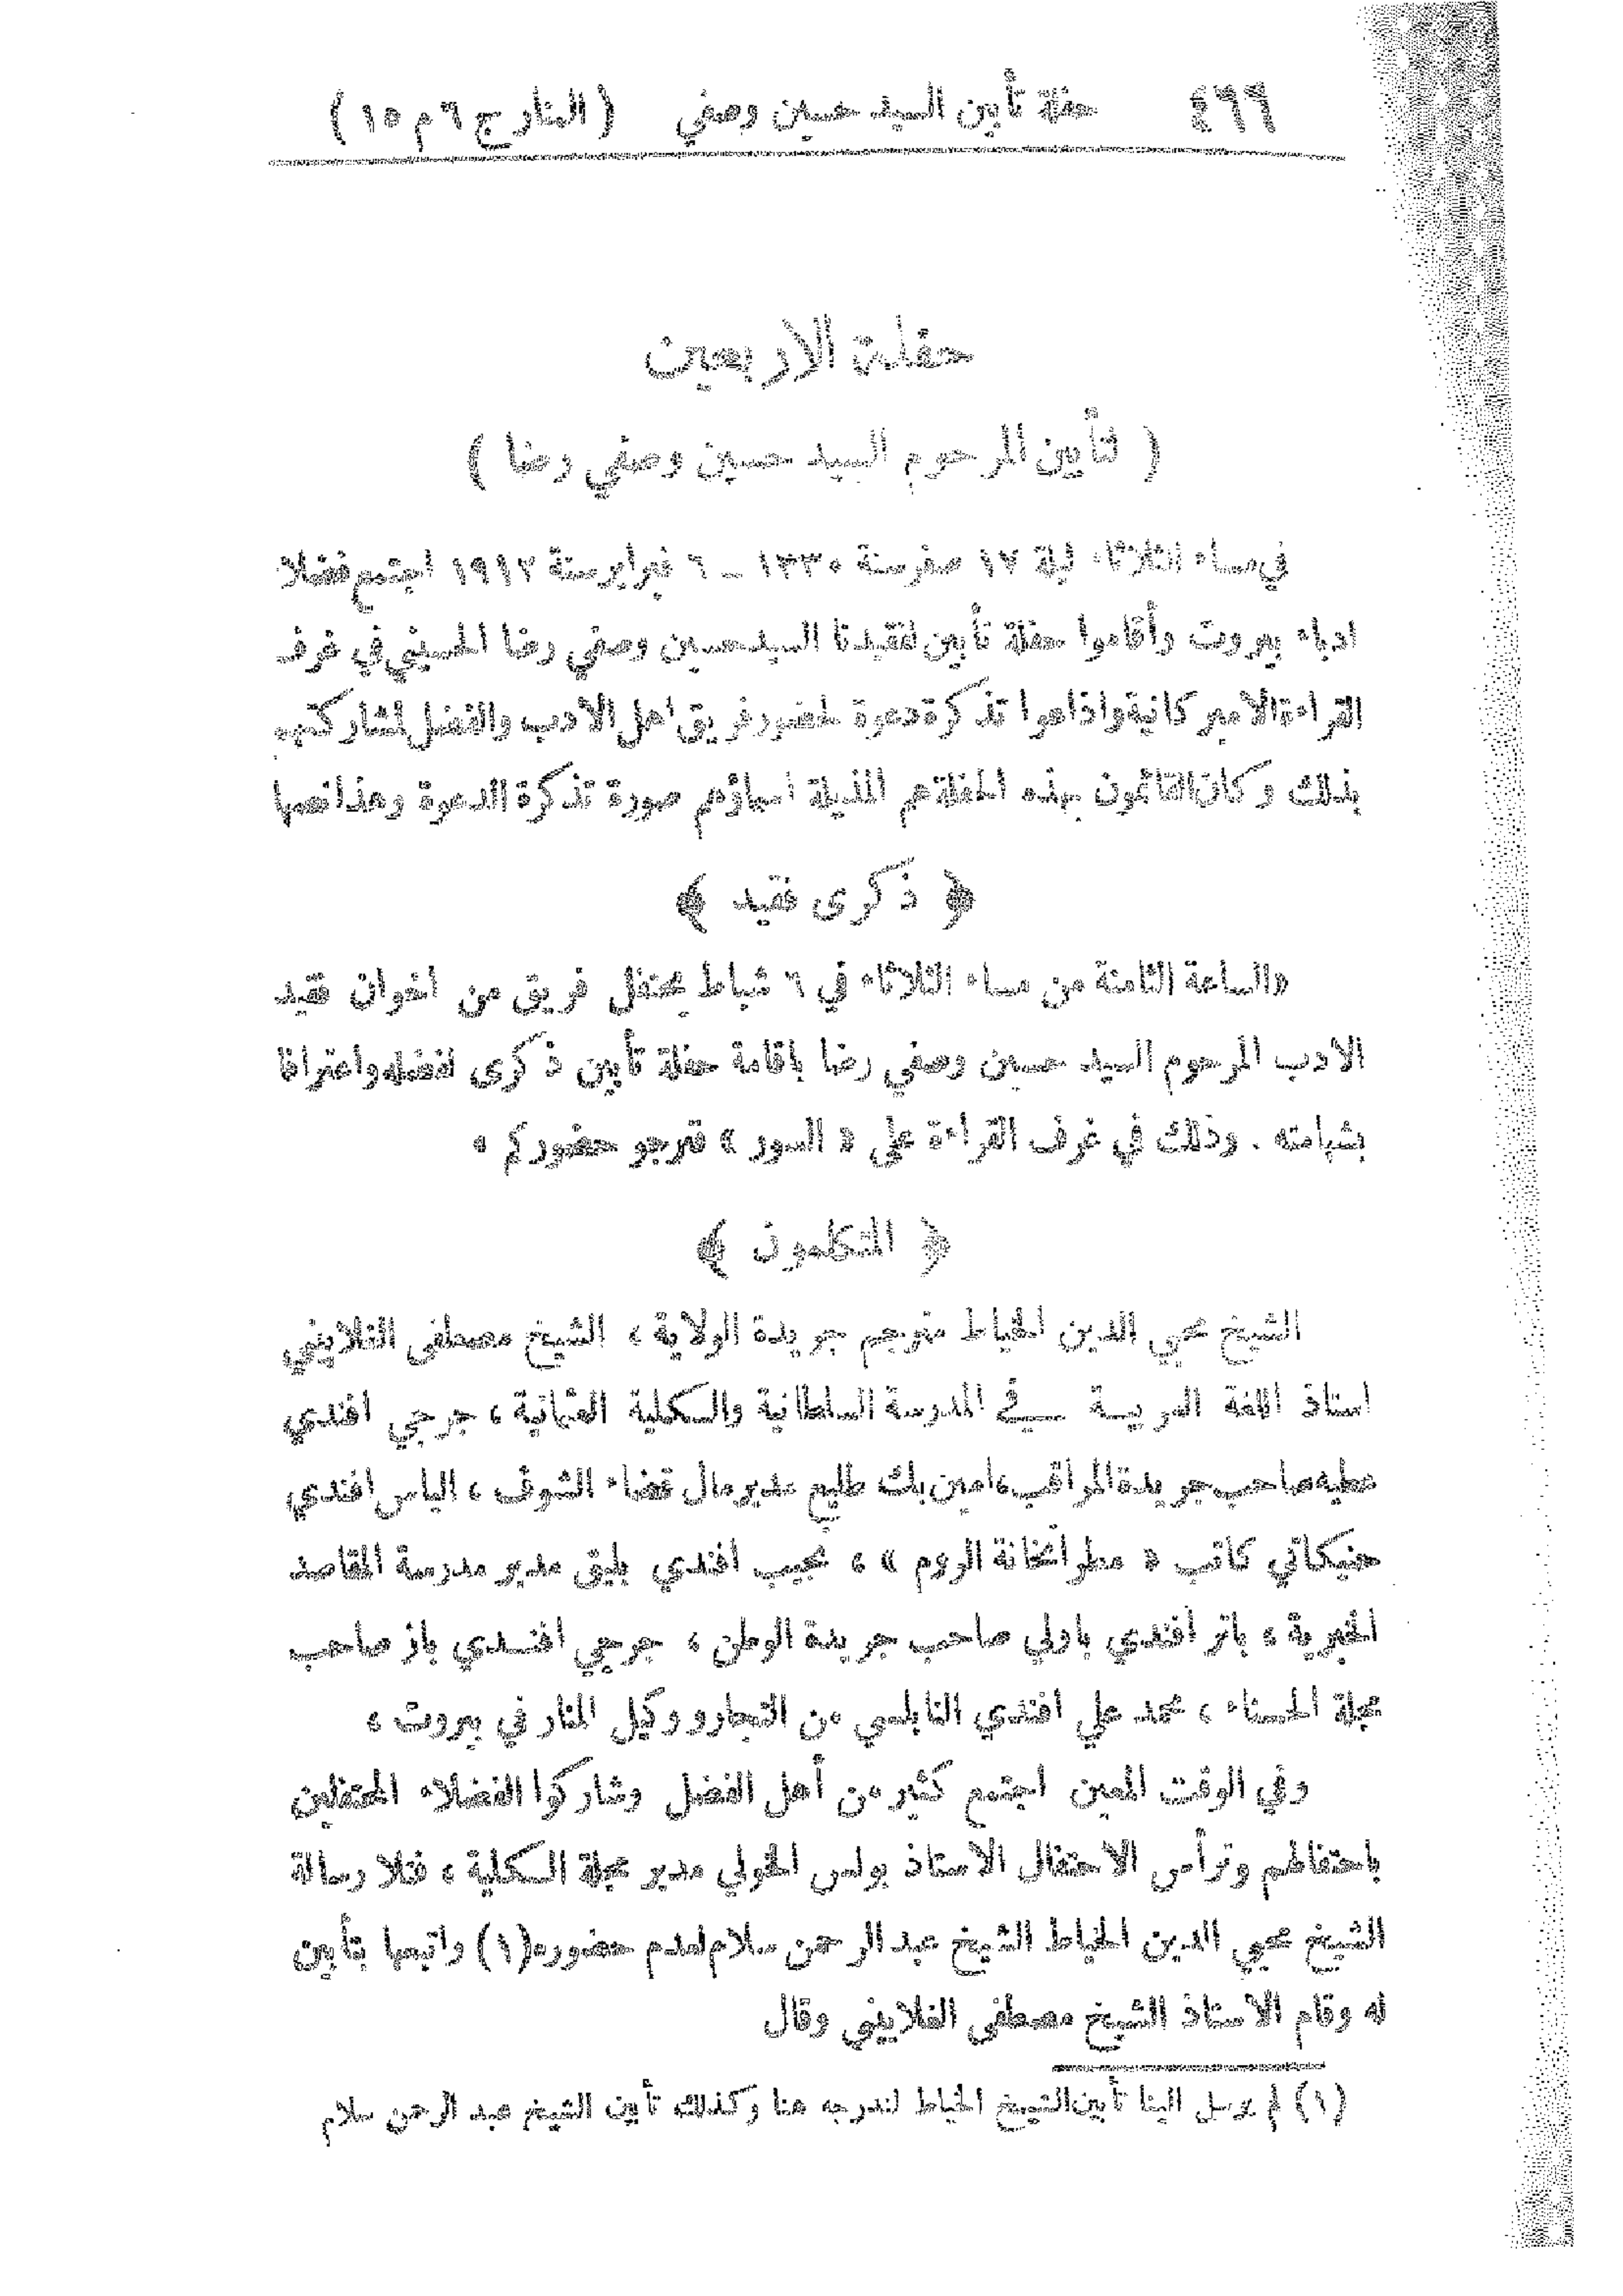 ٤٦٦ حفلة تأبين السيد حسين وصفي ( المنارج ٦ م ١٥ )
حفلة الاربعين
( لتأبين المرحوم السيد حسين وصفي رضا )
في مساء الثلاثاء ليلة ١٧ صفر سنة ١٣٣٠ – ٦ فبراير سنة ١٩١٢ اجتمع فضلا
ادباء بيروت وأقاموا حفلة تأبين لفقيدنا السيد حسين وصفي رضا الحسيني في غرف
القراءة الاميركانية واذاعوا تذكرة دعوة لحضور فريق اهل الادب والفضل لمشاركتهم
بذلك وكان القائمون بهذه الحفلة هم المذيلة اسماؤهم صورة تذكرة الدعوة وهذا نصها
﴿ ذكرى فقيد ﴾
«الساعة الثامنة من مساء الثلاثاء في ٦ شباط يحتفل فريق من اخوان فقيد
الادب المرحوم السيد حسين وصفي رضا باقامة حفلة تأبين ذكرى لفضله واعترافا
بشهامته . وذلك في غرف القراءة على « السور » فنرجو حضوركم »
﴿ المتكلمون ﴾
الشيخ محيي الدين الخياط مترجم جريدة الولاية ، الشيخ مصطفى الغلاييني
استاذ اللغة العربية في المدرسة السلطانية والكلية العثمانية ، جرجي افندي
عطيه صاحب جريدة المراقب ، امين بك طليع مدير مال قضاء الشوف ، الياس افندي
حنيكاتي كاتب « مطرانخانة الروم » ، نجيب افندي بليق مدير مدرسة المقاصد
الخيرية ، باتر افندي باولي صاحب جريدة الوطن ، جرجي افندي باز صاحب
مجلة الحسناء ، محمد علي افندي النابلسي من التجار ووكيل المنار في بيروت ،
وفي الوقت المعين اجتمع كثير من أهل الفضل وشاركوا الفضلاء المحتفلين
باحتفالهم وترأس الاحتفال الاستاذ بولس الخولي مدير مجلة الكلية ، فتلا رسالة
الشيخ محيي الدين الخياط الشيخ عبد الرحمن سلام لعدم حضوره (١) واتبعها بتأبين
له وقام الاستاذ الشيخ مصطفى الغلاييني وقال
(١) لم يرسل الينا تأبين الشيخ الخياط لندرجه هنا وكذلك تأبين الشيخ عبد الرحمن سلام